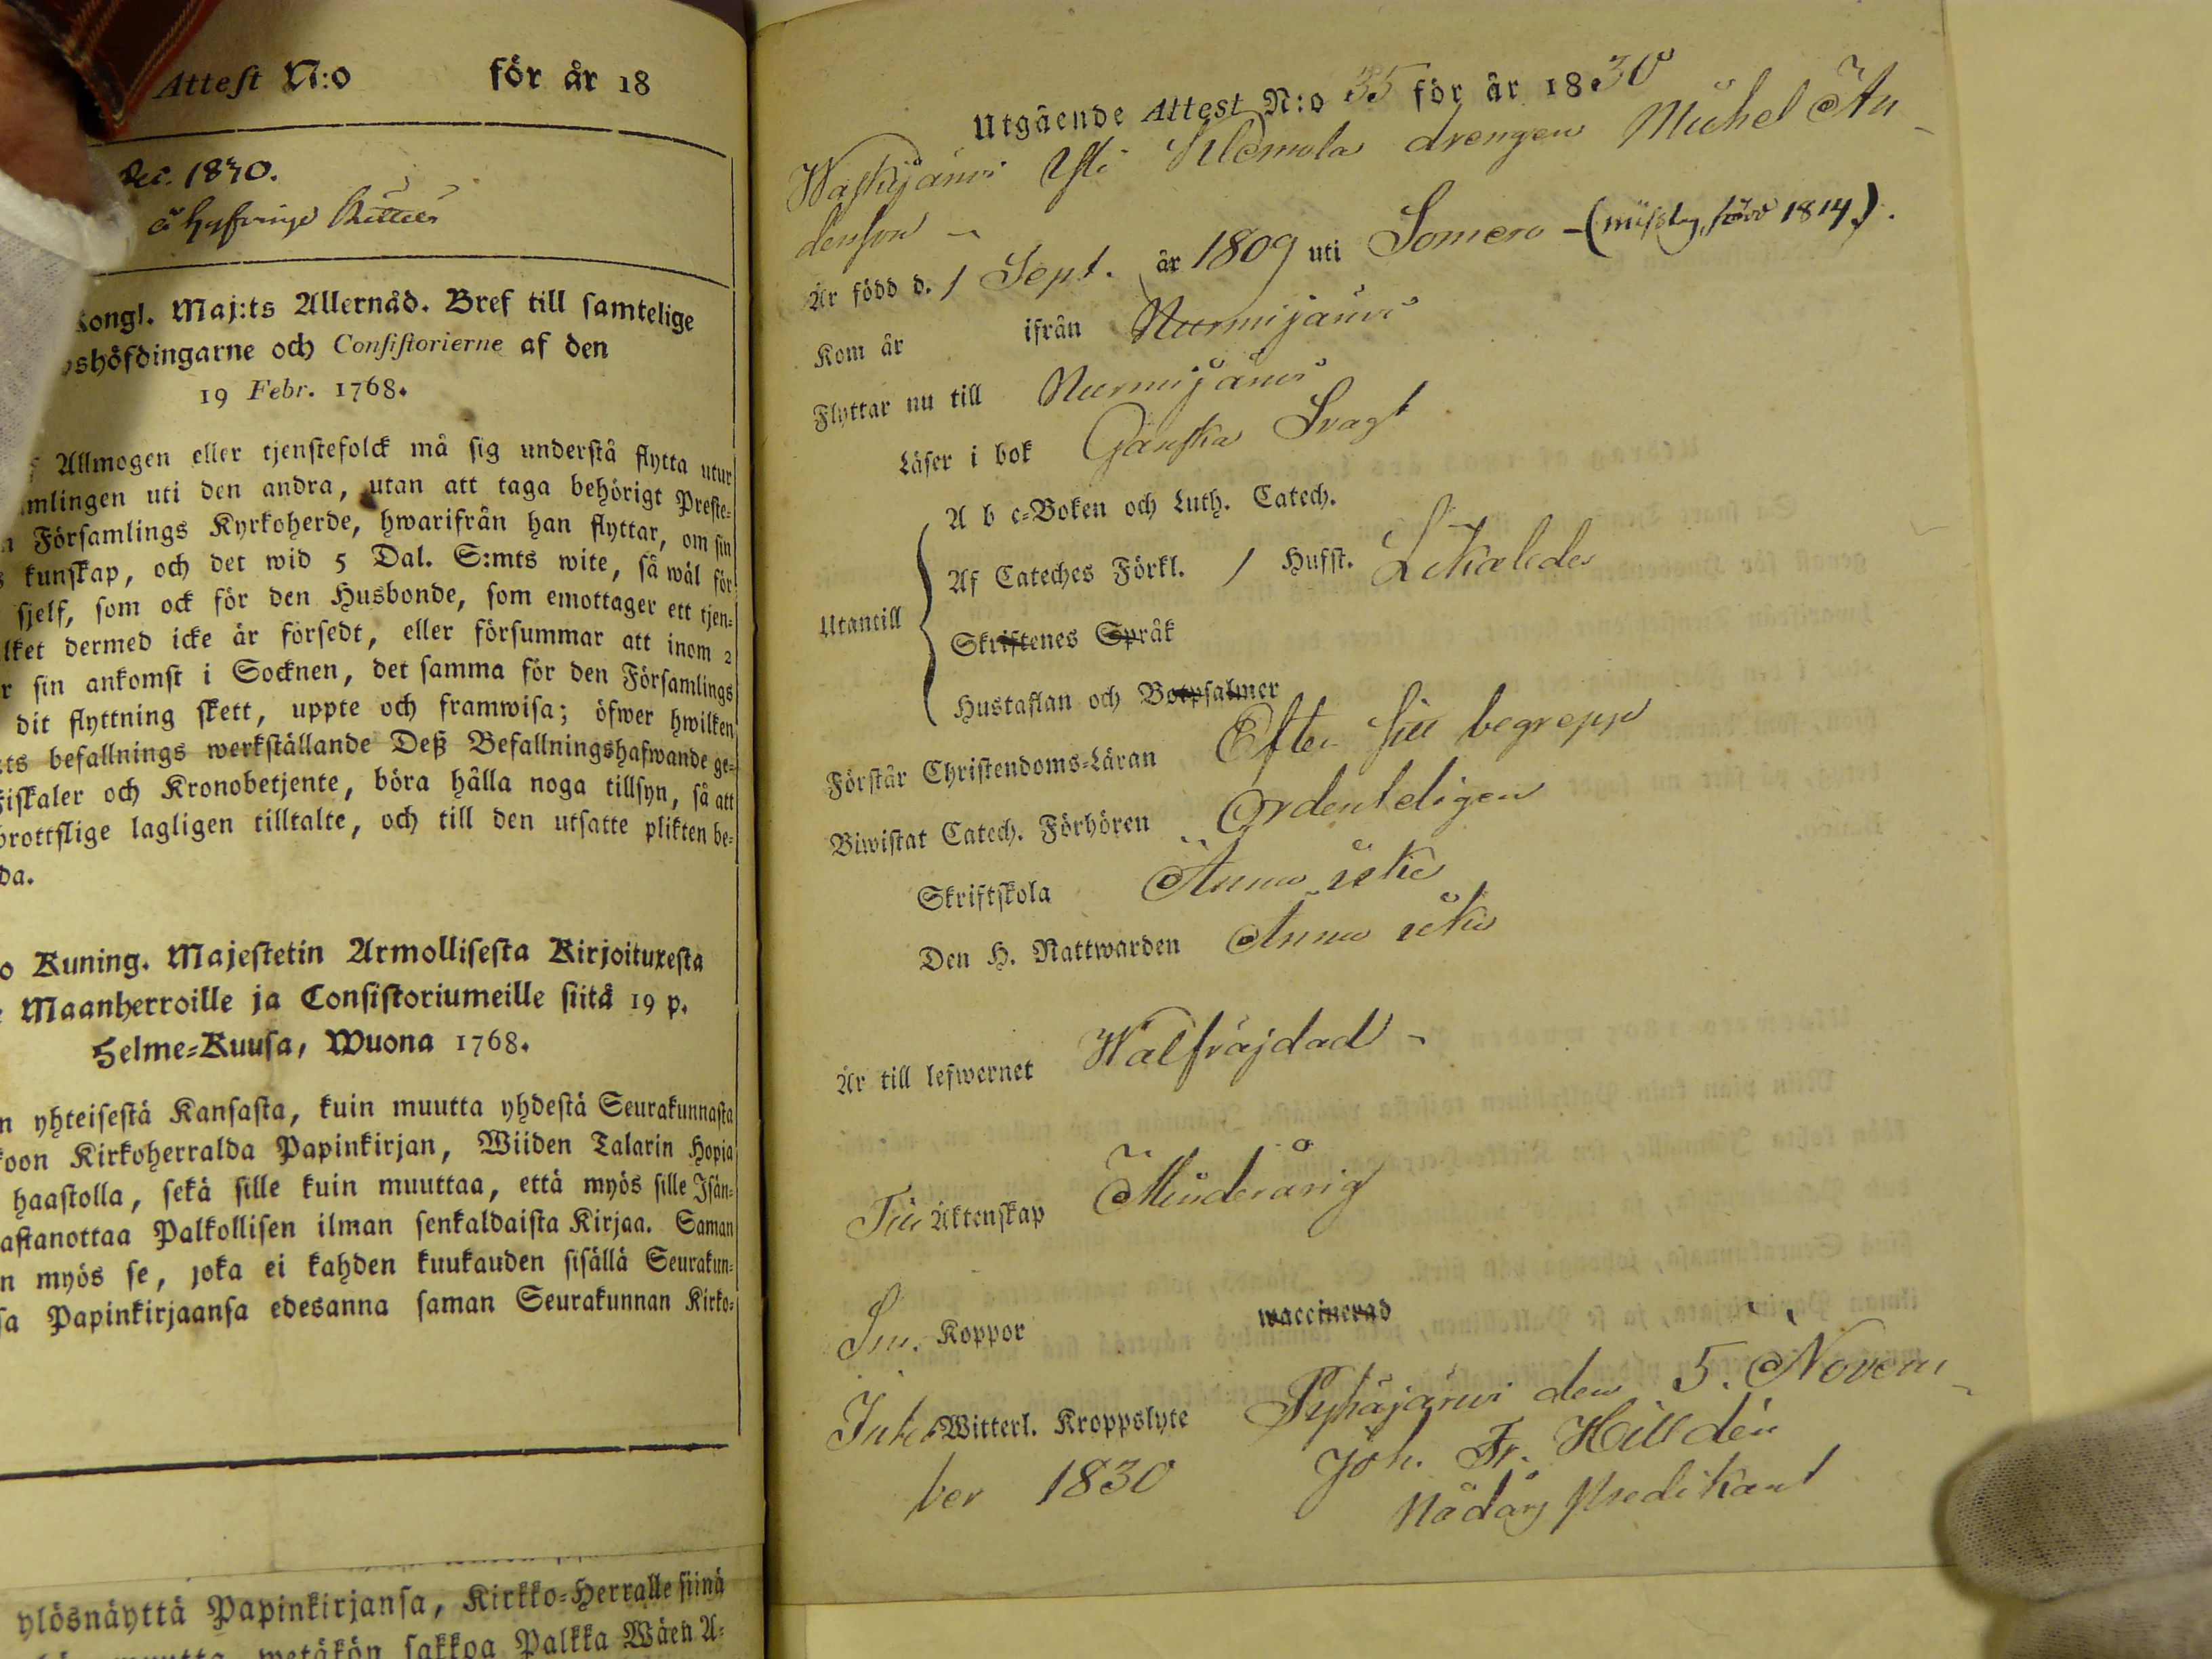 Attest N:o för år 18
Dec. 1830.
Kongl. Maj:ts Allernåd. Bref till samtelige
shöfdingarne och Consistorierne af den
19 Febr. 1768.
Allmogen eller tjenstefolck må sig understå flytta utur
mlingen uti den andra, utan att taga behörigt Preste-
Församlings Kyrkoherde, hwarifrån han flyttar, om sin
kunskap, och det wid 5 Dal. S:mts wite, så wäl för
sjelf, som ock för den Husbonde, som emottager ett tjen-
lket dermed icke är försedt, eller försummar att inom 2
r sin ankomst i Socknen, det samma för den Församlings
dit flyttning skett, uppte och framwisa; öfwer hwilken
:ts befallnings werkställande Deß Befallningshafwande ge-
Fiskaler och Kronobetjente, böra hålla noga tillsyn, så att
brottslige lagligen tilltalte, och till den utsatte plikten be-
da.
o Kuning. Majestetin Armollisesta Kirjoituxesta
Maanherroille ja Consistoriumeille siitä 19 p.
Helme-Kuusa, Wuona 1768.
n yhteisestä Kansasta, kuin muutta yhdestä Seurakunnasta
koon Kirkoherralda Papinkirjan, Wiiden Talarin Hopia
haastolla, sekä sille kuin muuttaa, että myös sille Isän-
astanottaa Palkollisen ilman senkaldaista Kirjaa. Saman
n myös se, joka ei kahden kuukauden sisällä Seurakun-
sa Papinkirjaansa edesanna saman Seurakunnan Kirko-
ylösnäyttä Papinkirjansa, Kirkko-Herralle siinä
muutta wetäkön sakkoa Palkka Wäen A-
Utgående Attest N:o 35 för år 1830
Waskijärwi Yli Kldmola drengen Michel An-
dersson -
Är född d. 1 Sept. år 1809 uti Somero - 1814).
Kom år ifrån Nurmijärwi
Flyttar nu till Nurmijärwi
Läser i bok Ganska Svagt
A b c-Boken och Luth. Catech.
Utantill
Af Cateches Förkl. 1 Hufst. Likaledes
Skriftenes Språk
Hustaflan och Botpsalmer
Förstår Christendoms-Läran Efter sitt begrepp
Biwistat Catech. Förhören Ordenteligen
Skriftskola Ännu icke
Den H. Nattwarden Ännu icke
Är till lefwernet Wälfräjdad -
Till Äktenskap Minderårig
Koppor waccinerad
Witterl. Kroppslyte Pyhäjärwi den 5. Novem-
ber 1830 Joh. Fr. Hilldén
Nådårs Predikant